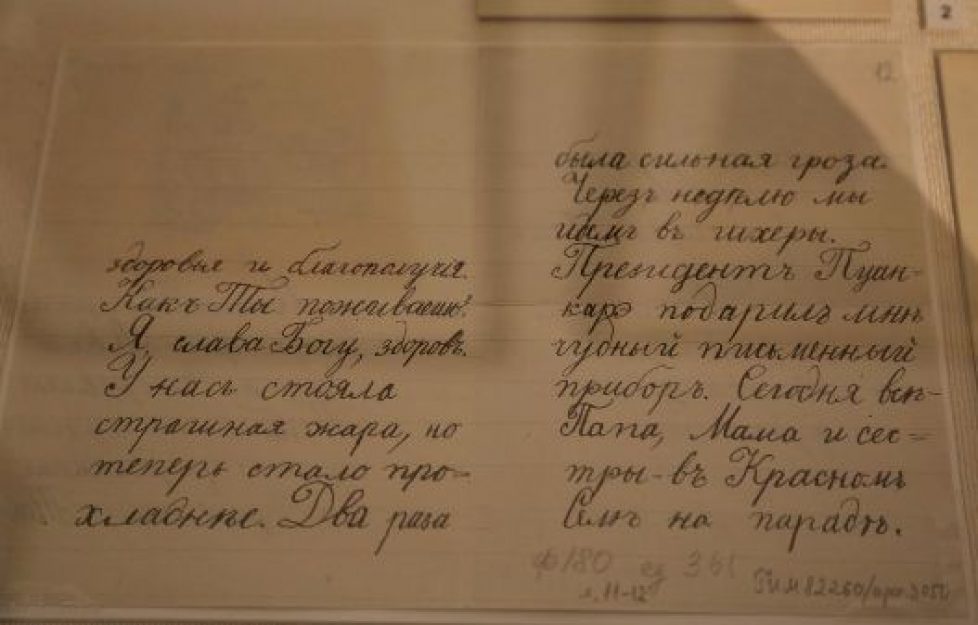 здоровья и благополучія.
Какъ Ты поживаешь?
Я, слава Богу, здоровъ.
У насъ стояла
страшная жара, но
теперь стало про-
хладнѣе. Два раза
2
12
была сильная гроза.
Черезъ недѣлю мы
идемъ въ шхеры.
Президентъ Пуан-
карэ подарилъ мнѣ
чудный письменный
приборъ. Сегодня всѣ-
Папа, Мама и сес=
тры-въ Красномъ
Селѣ на парадѣ.
ф180 ед 361
л. 11-12
ГИМ 82260/